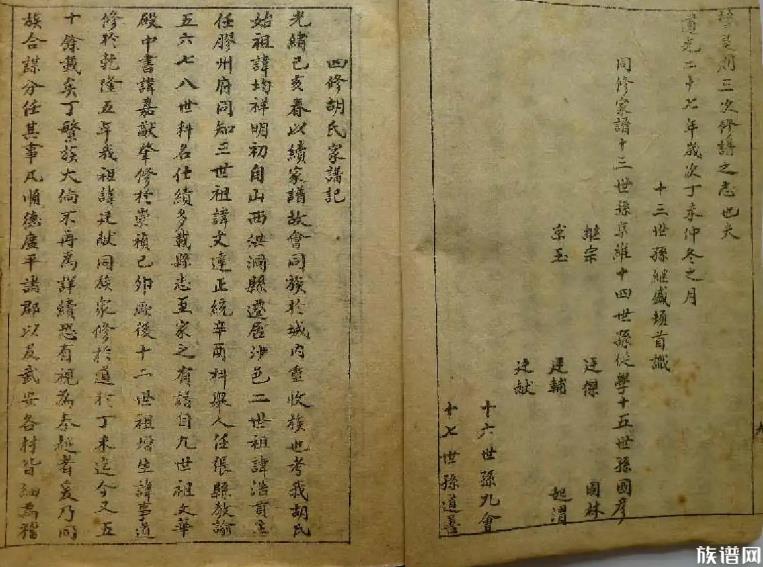 三次修譜之志也夫
道光二十七年歲次丁未仲冬之月
十三世孫繼盛頓首識
同修家譜十三世孫景維十四世孫從學十五世孫國彥
繼宗 廷傑 國林
宗玉 廷輔 起渭
廷献
十六世孫孔會
十七世孫道善
四修胡氏家譜記
光緒己亥春以續家譜故會同族於城內重收族也考我胡氏
始祖諱均祥明初自山西洪洞縣遷居沙邑二世祖諱浩貢生
任膠州府同知三世祖諱文達正統辛酉科舉人任張縣教諭
五六七八世科名仕績多載縣志至家之有譜自九世祖文華
殿中書諱嘉猷肇修於崇禎己卯厥後十二世祖增生諱事道
修於乾隆五年我祖諱廷献同族家修於道於丁未迄今又五
十餘載矣丁繁族大倘不再為詳續恐有視為秦越者爰乃同
族合謀分任其事凡順德廣平諸郡以及武安各村皆細為稽
族谱网